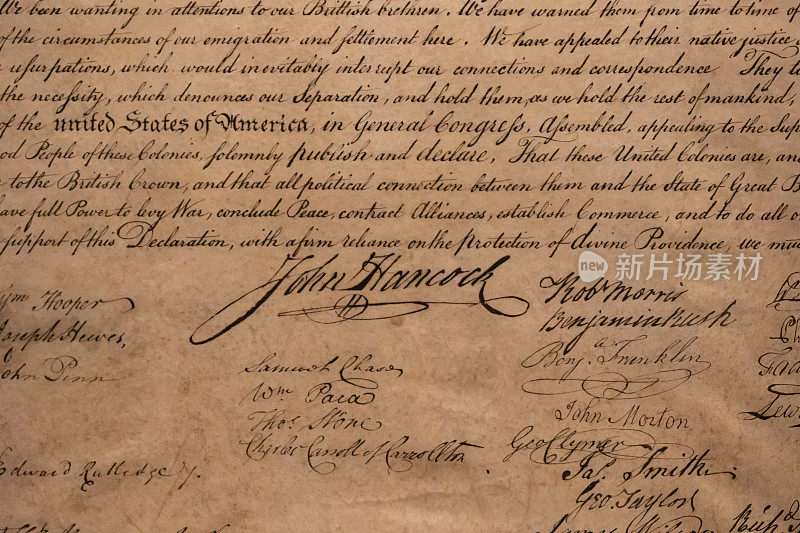 We been wanting in attentions to our Brittish brethren. We have warned them from time to time of
of the circumstances of our emigration and settlement here. We have appealed to their native justice
usurpations, which would inevitably interrupt our connections and correspondence They
the necessity, which denounces our Separation, and hold them, as we hold the rest of mankind,
of the united States of America, in General Congress, Assembled, appealing to the Sup
od People of these Colonies, solemnly publish and declare, That these United Colonies are, an
to the British Crown, and that all political connection between them and the State of Great B
ave full Power to levy War, conclude Peace, contract Alliances, establish Commerce, and to do all o
support of this Declaration, with a firm reliance on the protection of divine Providence, we mu
John Hancock
Wm Hooper
Joseph Hewes,
John Penn
Edward Rutledge
Samuel Chase
Wm Paca
Thos. Stone
Charles Carroll of Carrollton
Robt Morris
Benjamin Rush
Benja. Franklin
John Morton
Geo Clymer
Jas. Smith
Geo. Taylor
James Wilson
Ph
Lew
Rich
new 新图网